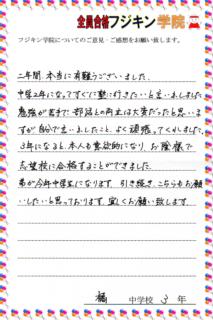 全員合格フジキン学院
フジキン学院についてのご意見・ご感想をお願い致します。
二年間、本当に有難うございました。
中学2年になってすぐに塾に行きたいと言いました。
勉強が苦手で部活との両立は大変だったと思いま
すが自分で言いましたこと、よく頑張ってくれました。
3年になると、本人も意欲的になり、お陰様で
志望校に合格することができました。
弟が今年中学生になります。引き続き、こちらもお願
いしたいと思っております。宜しくお願い致します。
中学校 3 年